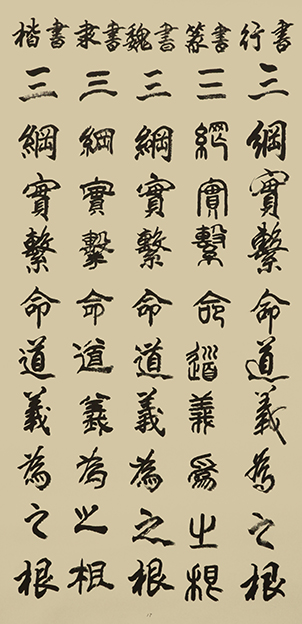 楷書 隶書 魏書 篆書 行書
三綱實繫命道義為之根
三綱實繫命道義為之根
三綱實繫命道義為之根
三綱實繫命道義為之根
三綱實繫命道義為之根